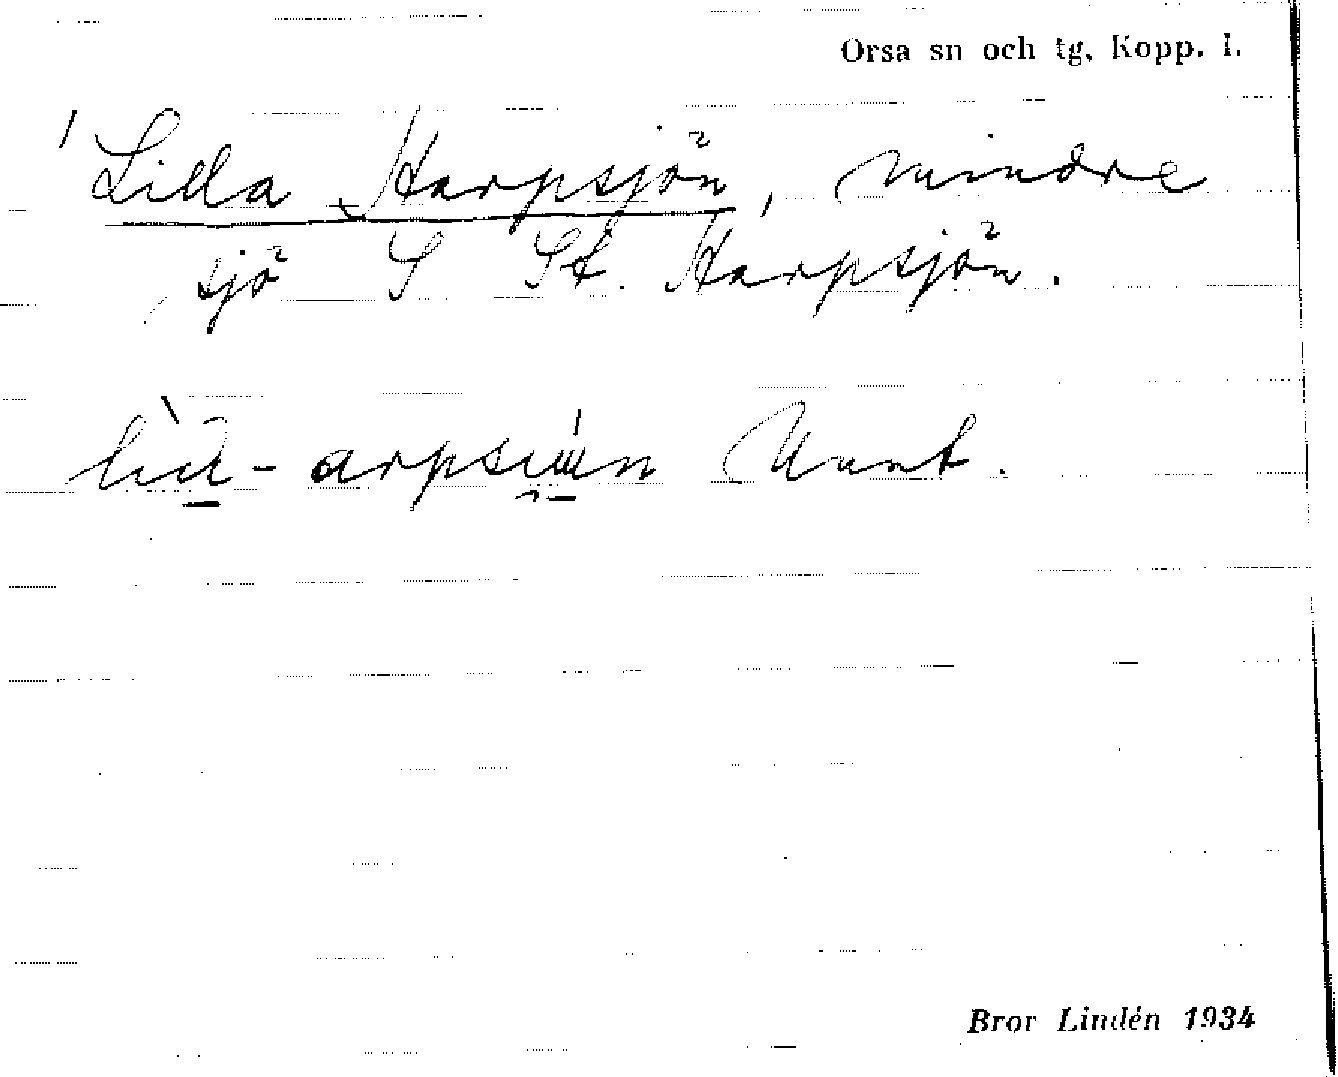 Orsa sn och tg, Kopp. l.
Lilla Harpsjön, mindre
sjö S St. Harpsjön.
Bror Lindén 1934